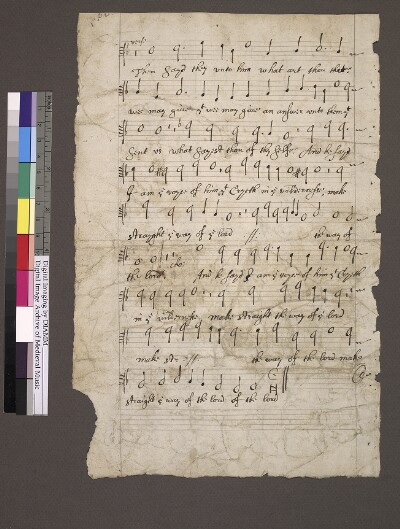 vers:
Then sayd they unto him what art thou that
we may give an we may give an answer unto them yt
sent us what sayest thou of thy selfe And he sayd
I am ye voyce of him yt Cryeth in ye wildernesse, make
straight ye way of ye lord :||: the way of
the lord cho: And he sayd I am ye voyce of him yt Cryeth
in ye wildernesse, make straight the way of ye lord
make str: :||: the way of the lord make
straight ye way of the lord of the lord
Digital Imaging by DIAMM
Digital Image Archive of Medieval Music